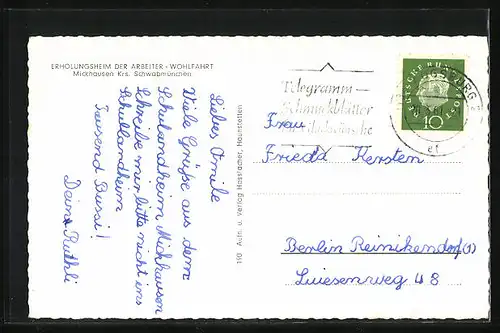 ERHOLUNGSHEIM DER ARBEITER-WOHLFAHRT
Mickhausen Krs. Schwabmünchen
Liebes Omile
Viele Grüße aus dem
Schulandheim Mickhausen
Schreibe mir bitte nicht ins
Schullandheim
Tausend Bussi!
Deine Ruthli
110 Aufn. u. Verlag Hassracher, Haunstetten
Telegramm-
Schmuckblätter
DEUTSCHE BUNDESPOST
10
Frau
Frieda Kersten
Berlin Reinikendorf (1)
Luisenweg 48